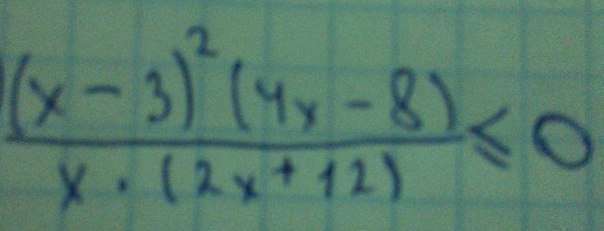 (x - 3)² (4x - 8)
≤ 0
x · (2x + 12)